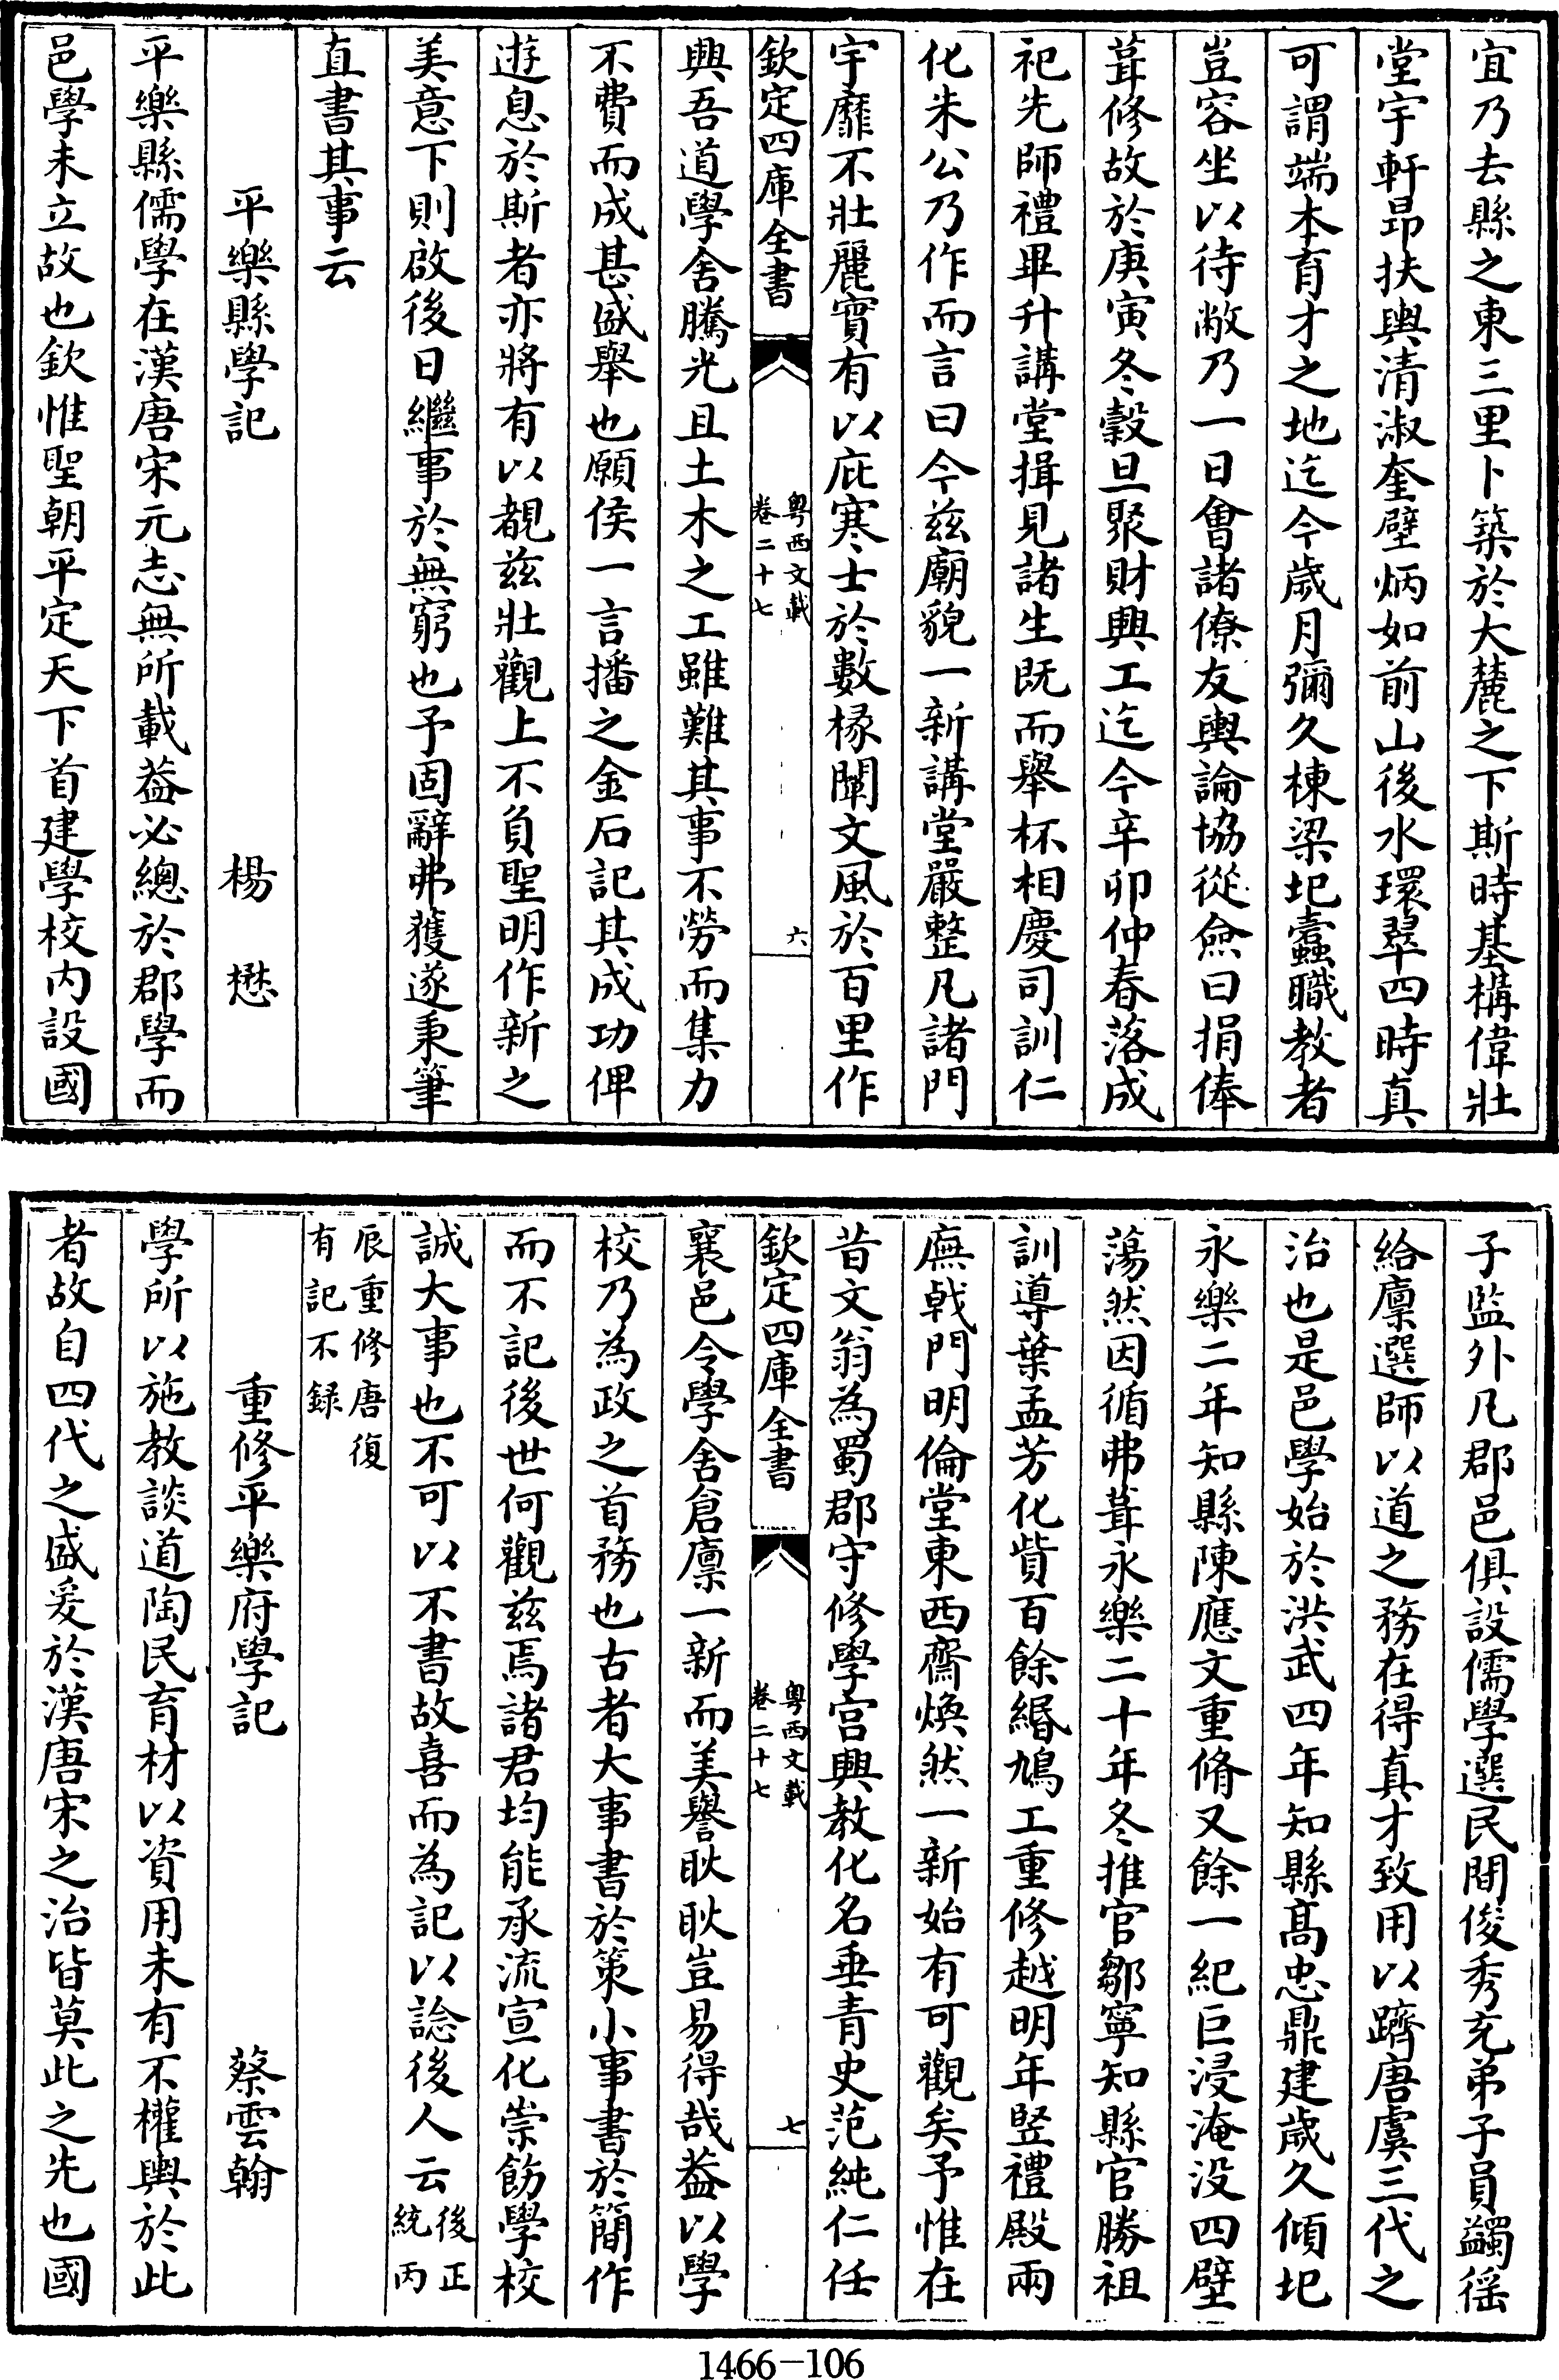 宜乃去縣之東三里卜築於大麓之下斯時基構偉壯
堂宇軒昂扶輿清淑奎壁炳如前山後水環翠四時真
可謂端本育才之地迄今歲月彌久棟梁圮蠹職教者
豈容坐以待敝乃一日會諸僚友輿論協從僉曰捐俸
葺修故於庚寅冬穀旦聚財興工迄今辛卯仲春落成
祀先師禮畢升講堂揖見諸生既而舉杯相慶司訓仁
化朱公乃作而言曰今兹廟貌一新講堂嚴整凡諸門
宇靡不壯麗實有以庇寒士於數椽闡文風於百里作
欽定四庫全書
粤西文載
卷二十七
六
興吾道學舍騰光且土木之工雖難其事不勞而集力
不費而成甚盛舉也願侯一言播之金石記其成功俾
遊息於斯者亦將有以覩兹壯觀上不負聖明作新之
美意下則啟後日繼事於無窮也予固辭弗獲遂秉筆
直書其事云
平樂縣學記 楊懋
平樂縣儒學在漢唐宋元志無所載葢必總於郡學而
邑學未立故也欽惟聖朝平定天下首建學校内設國
子監外凡郡邑俱設儒學選民間俊秀充弟子員蠲徭
給廩選師以道之務在得真才致用以躋唐虞三代之
治也是邑學始於洪武四年知縣髙忠鼎建歲久傾圮
永樂二年知縣陳應文重脩又餘一紀巨浸淹没四壁
蕩然因循弗葺永樂二十年冬推官鄒寧知縣官勝祖
訓導葉孟芳化貲百餘緡鳩工重修越明年竪禮殿兩
廡戟門明倫堂東西齋煥然一新始有可觀矣予惟在
昔文翁為蜀郡守修學宫興教化名垂青史范純仁任
欽定四庫全書
粤西文載
卷二十七
七
襄邑令學舍倉廩一新而美譽耿耿豈易得哉葢以學
校乃為政之首務也古者大事書於策小事書於簡作
而不記後世何觀兹焉諸君均能承流宣化崇飭學校
誠大事也不可以不書故喜而為記以諗後人云後正
統丙
辰重修唐復
有記不録
重修平樂府學記 蔡雲翰
學所以施教談道陶民育材以資用未有不權輿於此
者故自四代之盛爰於漢唐宋之治皆莫此之先也國
1466-106